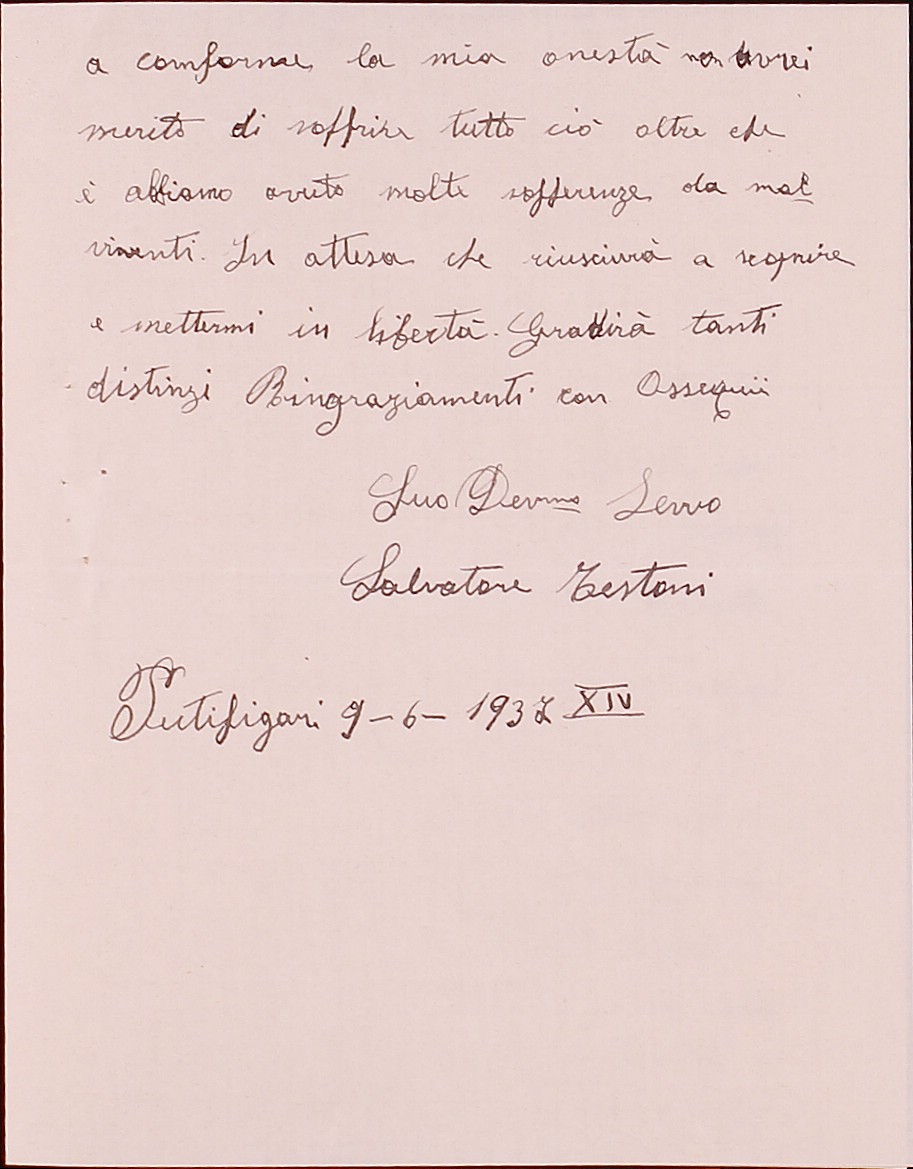 a comforme la mia onestà non avrei
merito di soffrire tutto ciò oltre che
è abbiamo avuto molte sofferenze da mal
viventi. In attesa che riuscirà a
e mettermi in libertà. Gradirà tanti
distinzi Ringraziamenti con Ossequii
Suo Dev.mo Servo
Salvatore Testoni
Putifigari 9-6-1937 XIV